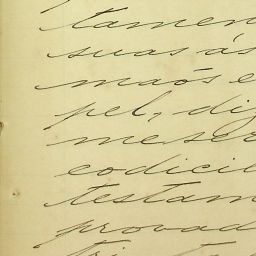 tamen
suas ás
maõs e
pel, di
me ser
codicil
testam
provad